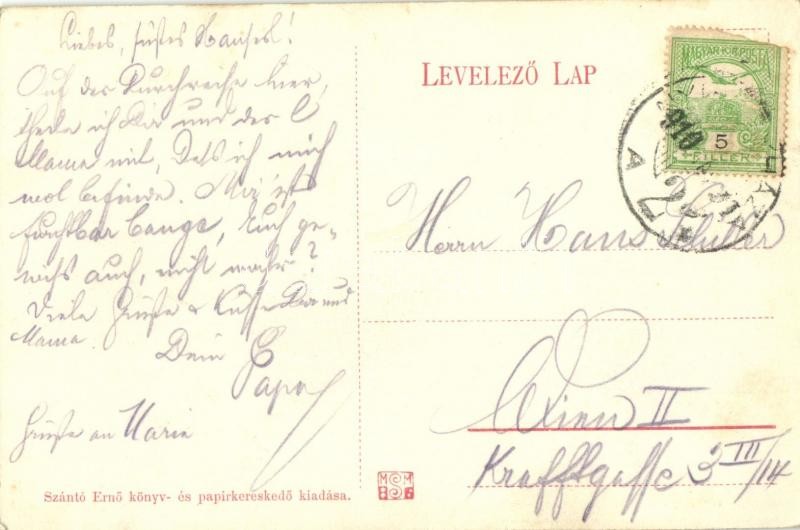 Liebes, süßes Hanserl!
Auf der Durchreise hier,
theile ich Dir und der l.
Mama mit, daß ich mich
wol befinde. Mir ist
furchtbar bange, Euch ge-
wiß auch, nicht wahr?
Viele Grüße & Küsse Dir und
Mama.
Dein
Papa
Grüße an Marie
Szántó Ernő könyv- és papirkereskedő kiadása.
LEVELEZŐ LAP
MAGYAR KIR. POSTA
5
FILLÉR
910
Herrn Hans
Wien II
Krafftgasse 3 III/14